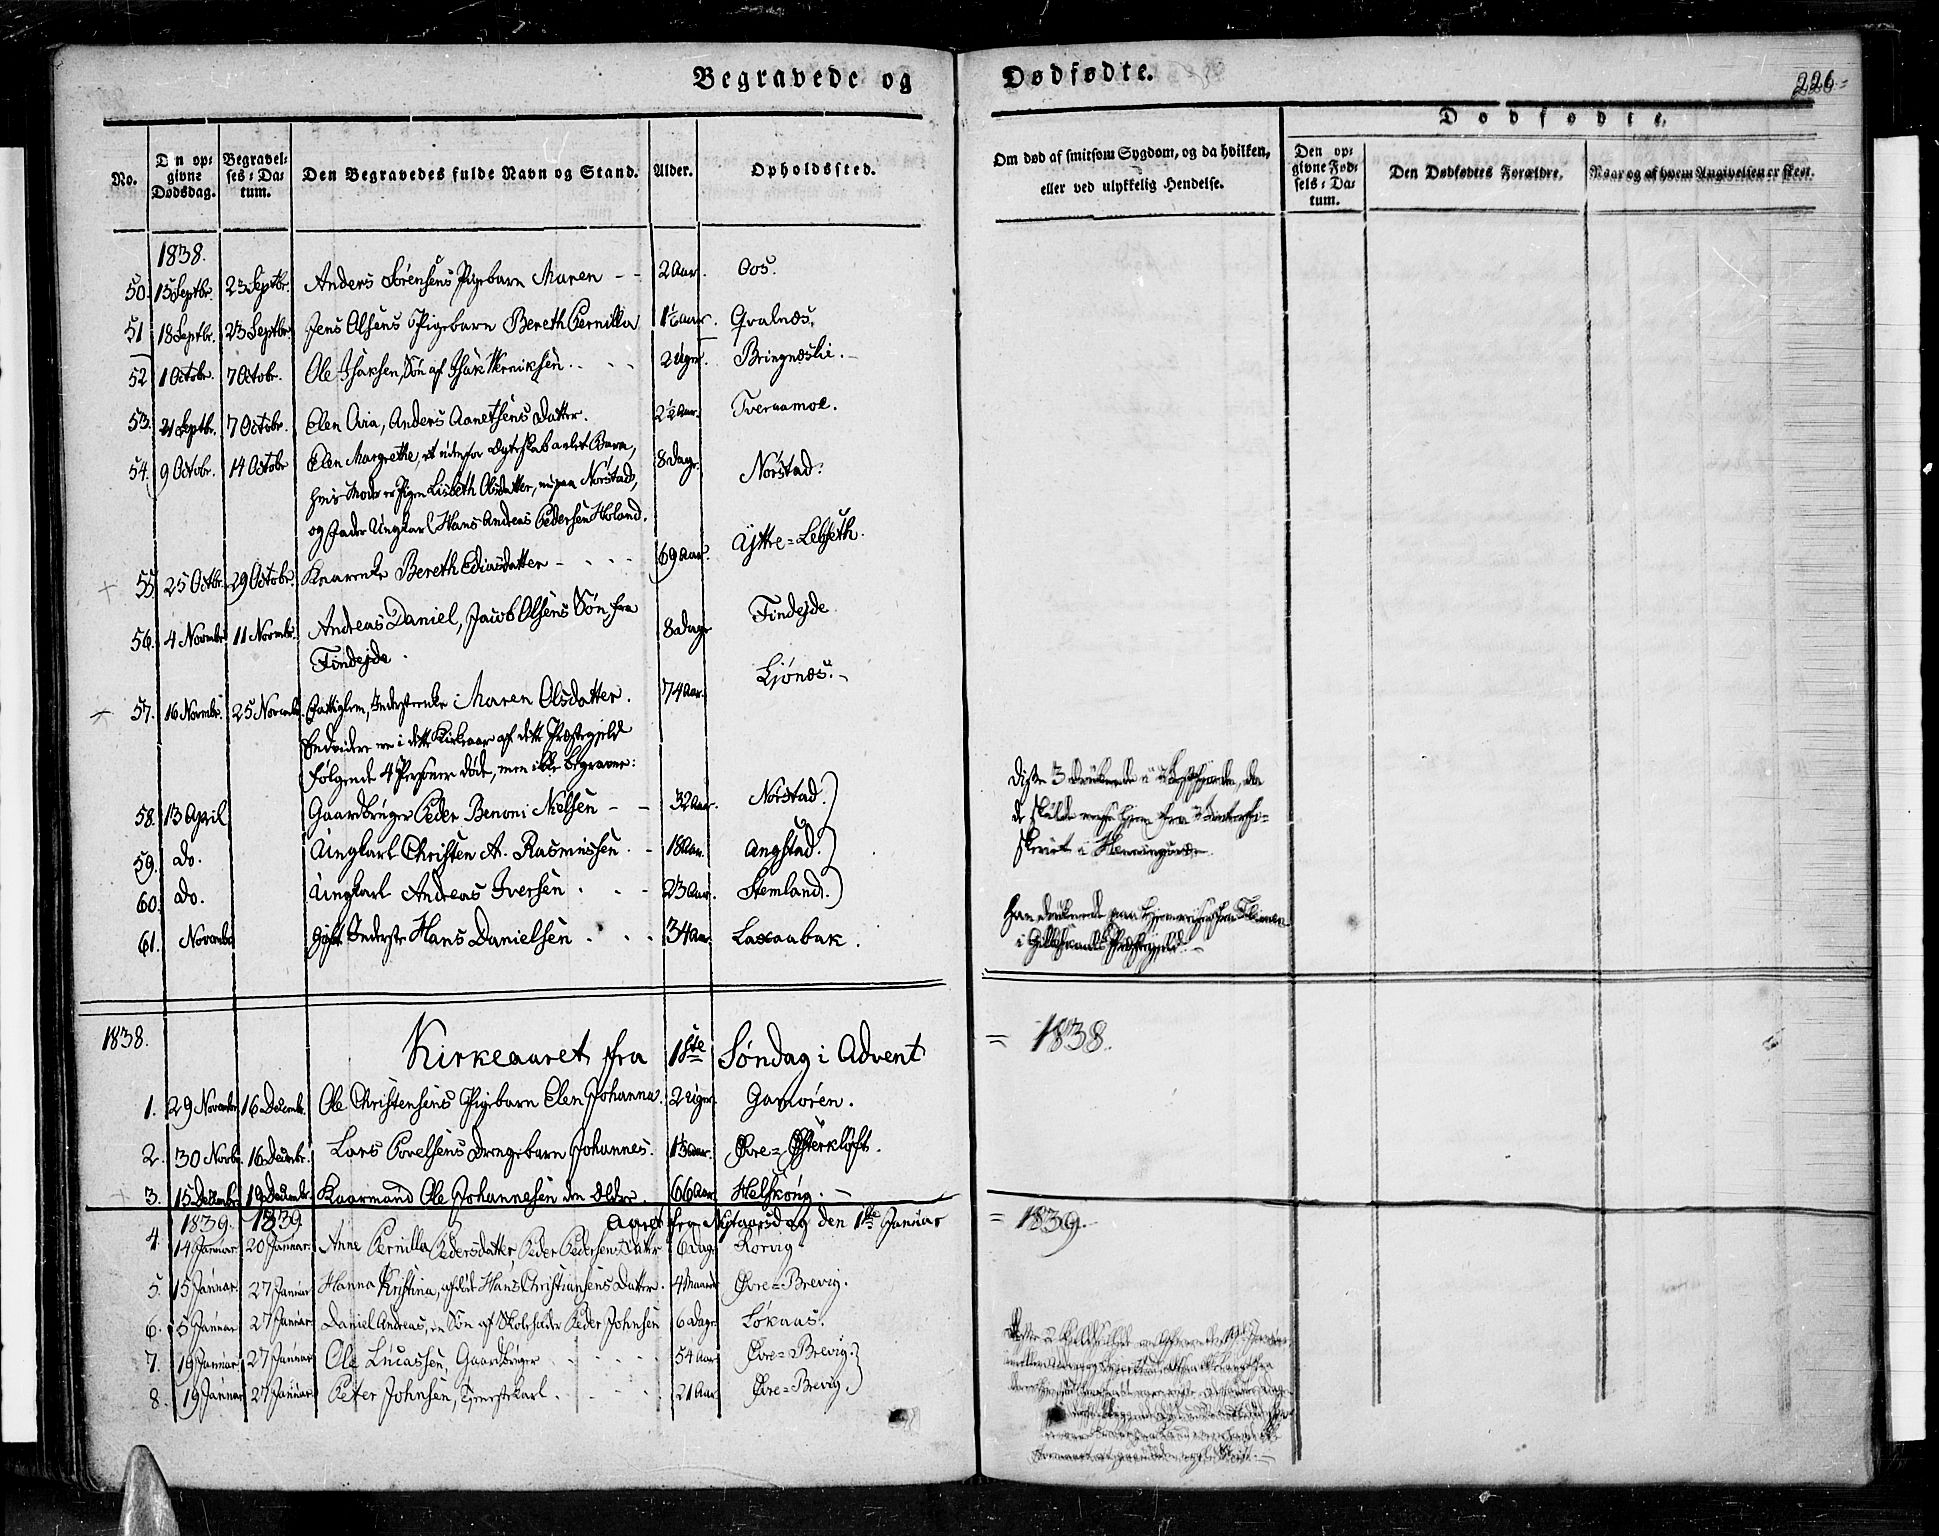 Begravede og Dødfødte.
226
No. Den opgivne Dødsdag. Begravelses-Datum. Den Begravedes fulde Navn og Stand. Alder. Opholdssted.
Om død af smitsom Sygdom, og da hvilken, eller ved ulykkelig Hendelse.
Dødfødte.
Den opgivne Fødsels-Datum. Den Dødfødtes Forældre. Naar og af hvem Angivelsen er skeet.
1838.
50. 15 Septbr. 23 Septbr. Anders Sørensens Pigebarn Maren - - 2 Aar. Oos.
51 18 Septbr. 23 Septbr. Jens Olsens Pigebarn Bereth Pernilla 1½ Aar. Qvalnæs.
52 1 Octobr. 7 Octobr. Ole Isaksen, Søn af Isak Henriksen 2 Uger. Bringnæslie.
53. 21 Septbr. 7 Octobr. Elen Ovia, Anders Aanethsens Datter. 2½ Aar. Tveraamoe.
54. 9 Octobr. 14 Octobr Elen Margrethe, et udenfor Ægteskab avlet Barn, 8 Dage. Norstad.
hvis Moder er Pigen Lisbeth Olsdatter, nu paa Norstad,
og Fader Ungkarl Hans Andreas Pedersen Holand.
55 25 Octbr. 29 Octobr. Kaarenke Bereth Ediasdatter - - - 69 Aar. Ÿttre-Lebseth.
56. 4 Novembr 11 Novembr. Andreas Daniel, Jacob Olsens Søn fra 8 Dage Findejde
Findejde.
57. 16 Novembr. 25 Novembr. Fattiglem, Inderstenke Maren Olsdatter. 74 Aar. Ljønæs.
Endvidere ere i dette Kirkeaar af dette Præstegjeld
følgende 4 Personer døde, men ikke begravne:
58. 13 April Gaardbruger Peder Benoni Nielsen - - 32 Aar. Norstad.
59. do. Ungkarl Christen A. Rasmussen - 18 Aar. Angstad.
60. do. Ungkarl Andreas Iversen 23 Aar. Stemland.
61. Novembr Gift Inderste Hans Danielsen 34 Aar. Laxaabak.
Disse 3 druknede i Vestfjorden, da
de skulde reise hjem fra Vinterfi-
skeriet i Henningsvær.
Han druknede paa Hjemreisen fra
i Gilleskaals Præstegjeld.
1838. Kirkeaaret fra 1ste Søndag i Advent = 1838.
1. 29 Novembr 16 Decembr. Ole Christensens Pigebarn Elen Johanna. 2 Uger. Gamøren.
2. 30 Novbr. 16 Decembr. Lars Povelsens Drengebarn Johannes. Øvre-Østerkløft.
3. 15 Decembr 19 Decembr. Kaarmand Ole Johannesen den Ældre. 66 Aar Helskong.
1839. 1839 Aaret fra Nytaarsdag den 1ste Januar = 1839.
4 14 Januar 20 Januar. Anne Pernilla Pedersdatter Peder Pedersens Datter 6 Dage Korvig
5. 15 Januar. 27 Januar Hanna Kristina, afdøde Hans Christiansens Datter. 4 Maaneder Øvre-Brevig.
6. 5 Januar 27 Januar. Daniel Andreas, en Søn af Skoleholder Peder Johnsen 6 Dage Løkaas.
7. 19 Januar 27 Januar Ole Lucassen, Gaardbruger 54 Aar Øvre-Brevig.
8. 19 Januar 27 Januar Peter Johnsen, Tjenestekarl. 21 Aar. Øvre-Brevig.